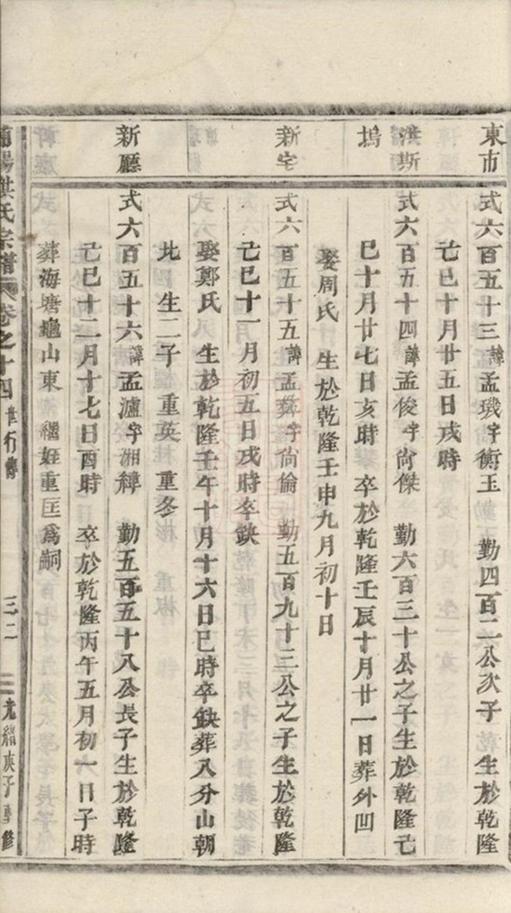 東市
式六百五十三諱孟璣字衡玉　勤四百二公次子　生於乾隆
己巳十月廿五日戌時
洪斯
式六百五十四諱孟俊字尙傑　勤六百三十公之子生於乾隆己
塢
巳十月廿七日亥時　卒於乾隆壬辰十月廿一日葬外凹
娶周氏　生於乾隆壬申九月初十日
新宅
式六百五十五諱孟舜字尙倫　勤五百九十二公之子生於乾隆
己巳十一月初五日戌時卒缺
娶鄭氏　生於乾隆壬午十月十六日巳時卒缺葬八分山朝
北　生二子　重英　重冬
新廳
式六百五十六諱孟瀘字湘繹　勤五百五十八公長子生於乾隆
己巳十二月十七日酉時　卒於乾隆丙午五月初一日子時
葬海塘龜山東　繼姪重匡爲嗣
洪氏宗譜　卷之十四　世行傳　三二　光緒庚子重修